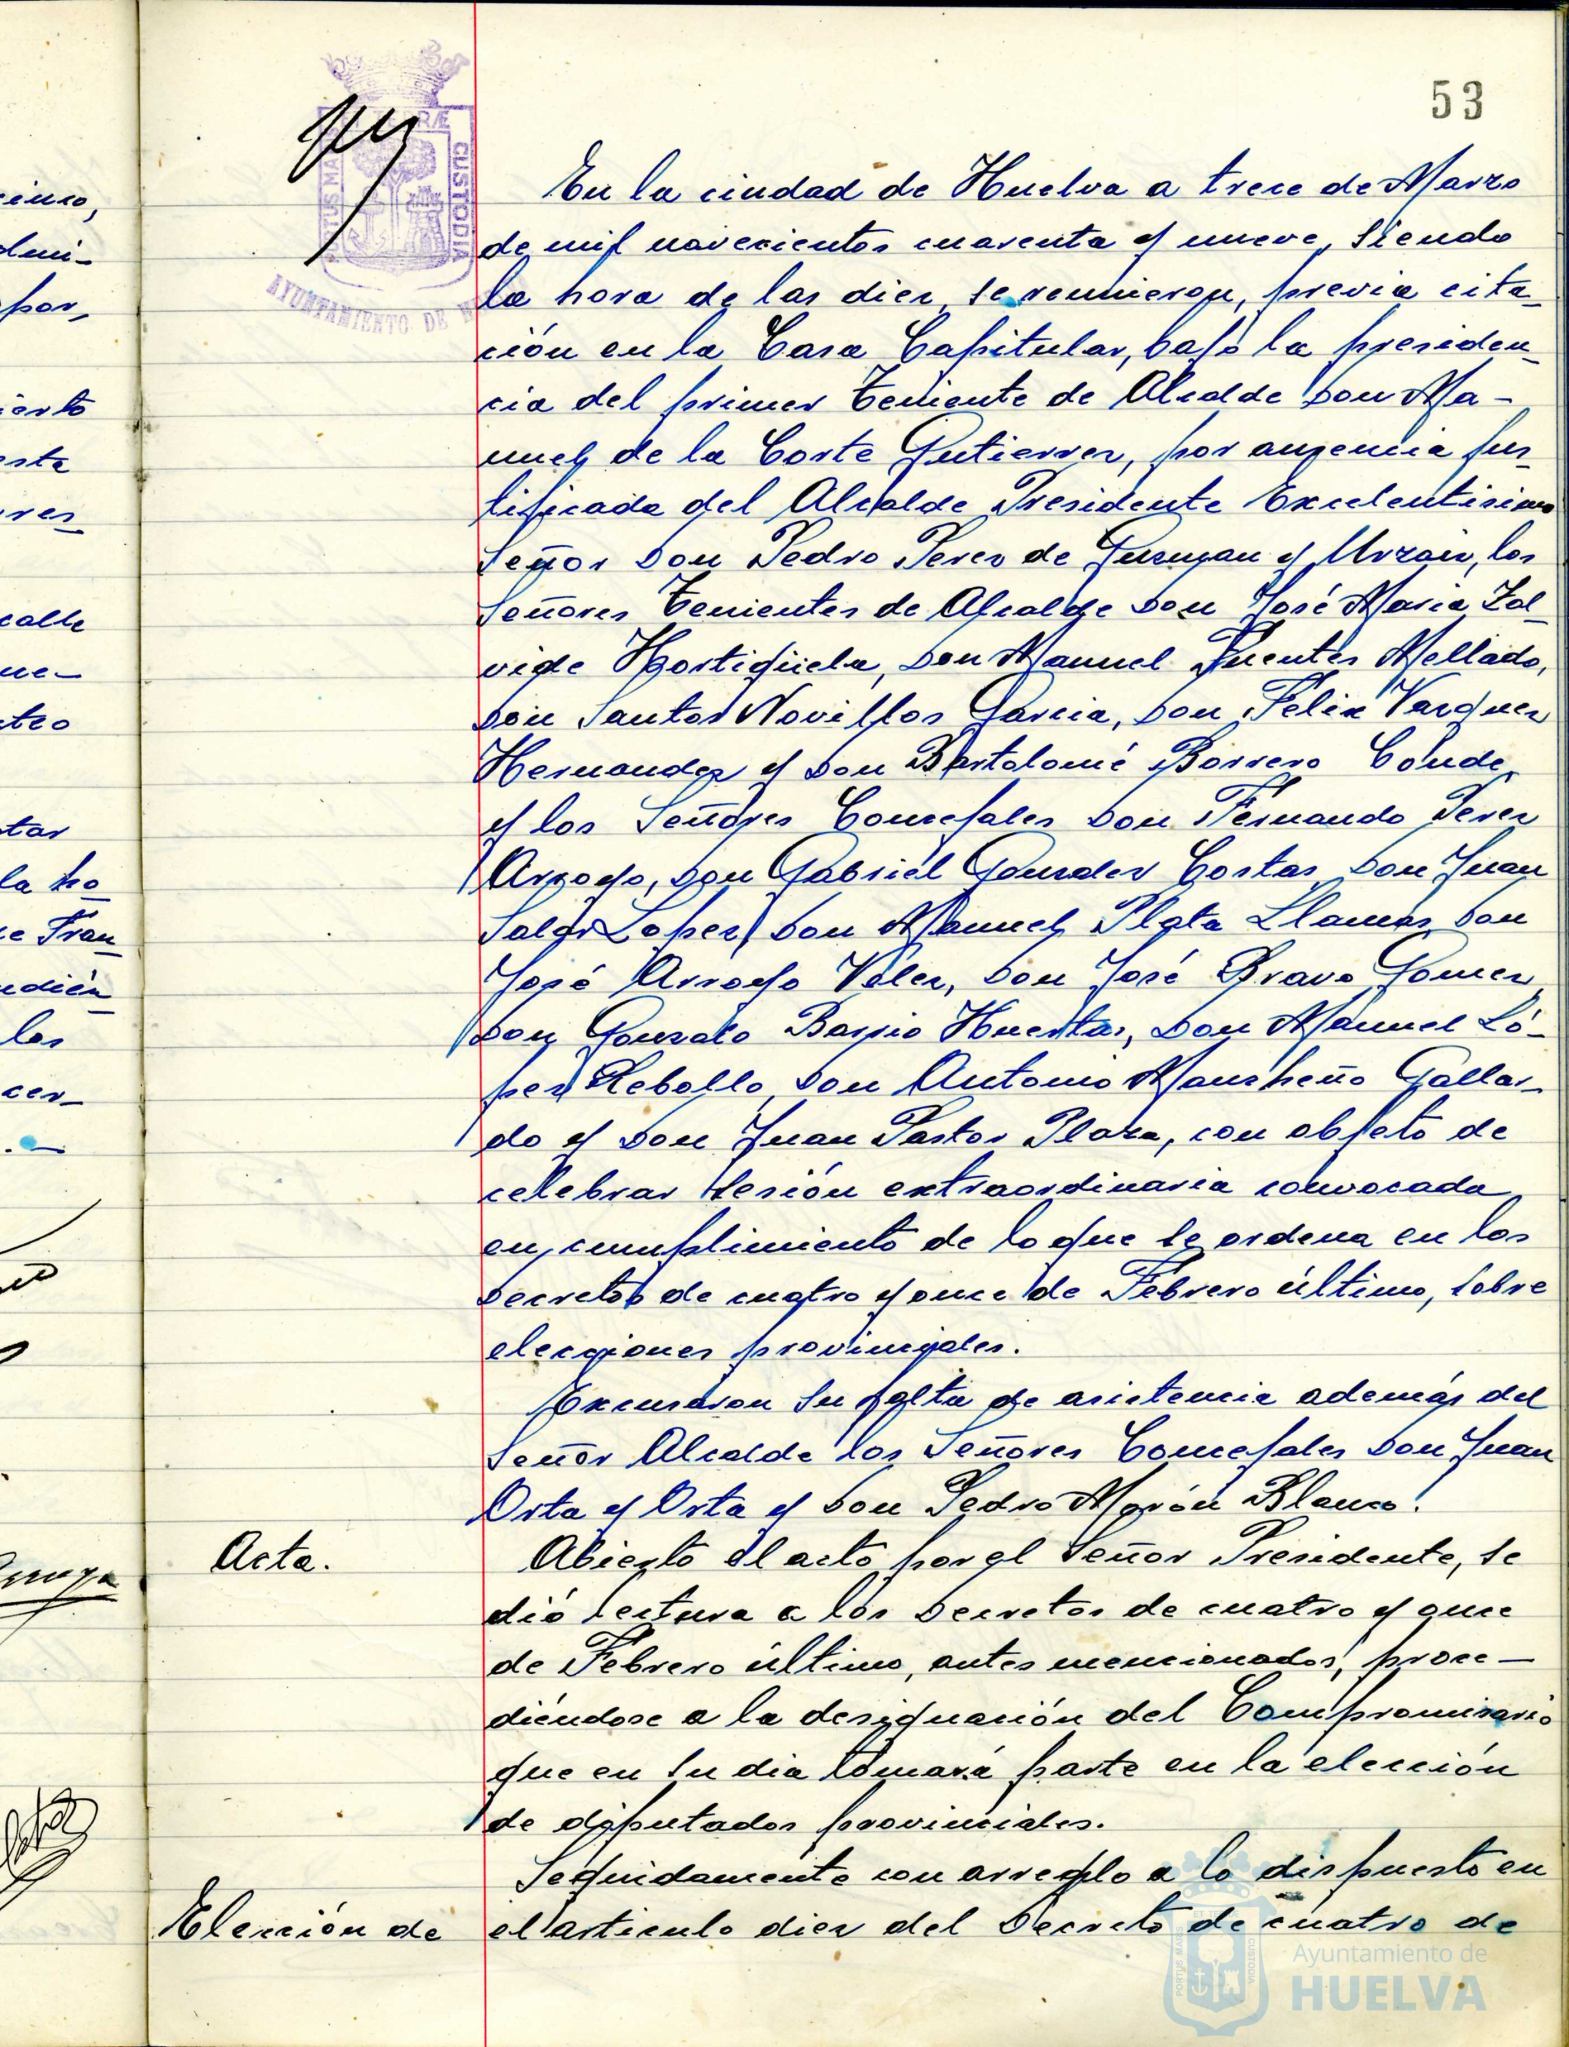 53
PORTUS MARIS ET TERRÆ CUSTODIA
AYUNTAMIENTO DE
En la ciudad de Huelva a trece de Marzo
de mil novecientos cuarenta y nueve, siendo
la hora de las diez, se reunieron, previa cita-
ción en la Casa Capitular, bajo la presiden-
cia del primer Teniente de Alcalde Don Ma-
nuel de la Corte Gutierrez, por ausencia jus-
tificada del Alcalde Presidente Excelentisimo
Señor Don Pedro Perez de Guzman y Urzaiz, los
Señores Tenientes de Alcalde Don José Maria Zal-
vide Hortigüela, Don Manuel Fuentes Mellado,
Don Santos Novillos Garcia, Don Felix Vazquez
Hernandez y Don Bartolomé Borrero Conde,
y los Señores Concejales Don Fernando Perez
Arroyo, Don Gabriel Gonzalez Costas, Don Juan
Salas Lopez, Don Manuel Plata Llamas, Don
José Arroyo Vélez, Don José Bravo Gomez,
Don Gonzalo Barrio Huertas, Don Manuel Ló-
pez Rebollo, Don Antonio Mancheño Gallar-
do y Don Juan Pastor Plaza, con objeto de
celebrar sesión extraordinaria convocada
en cumplimiento de lo que se ordena en los
Decretos de cuatro y once de Febrero último, sobre
elecciones provinciales.
Excusaron su falta de asistencia además del
Señor Alcalde los Señores Concejales Don Juan
Orta y Orta y Don Pedro Morón Blanco.
Acta.
Abierto el acto por el Señor Presidente, se
dió lectura a los Decretos de cuatro y once
de Febrero último, antes mencionados, proce-
diéndose a la designación del Compromisario
que en su dia tomará parte en la elección
de diputados provinciales.
Elección de
Seguidamente con arreglo a lo dispuesto en
el articulo diez del Decreto de cuatro de
cinco,
por,
ierto
esta
calle
tar
la
Fran
los
Ayuntamiento de
HUELVA